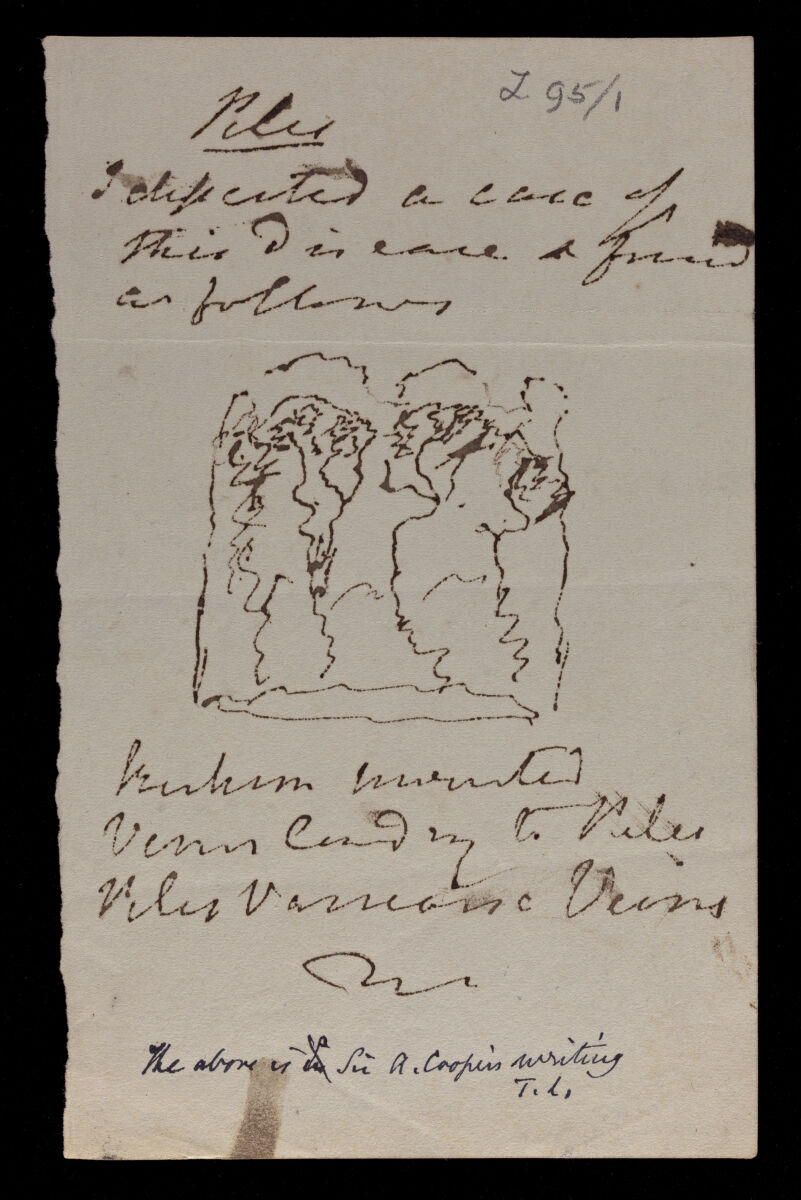 Z 95/1
Piles
I dissected a case of
this Disease & found
as follows
Rectum inverted
Veins leading to Piles
Piles Varicose Veins
The above is Sir A. Cooper's writing
T. L.